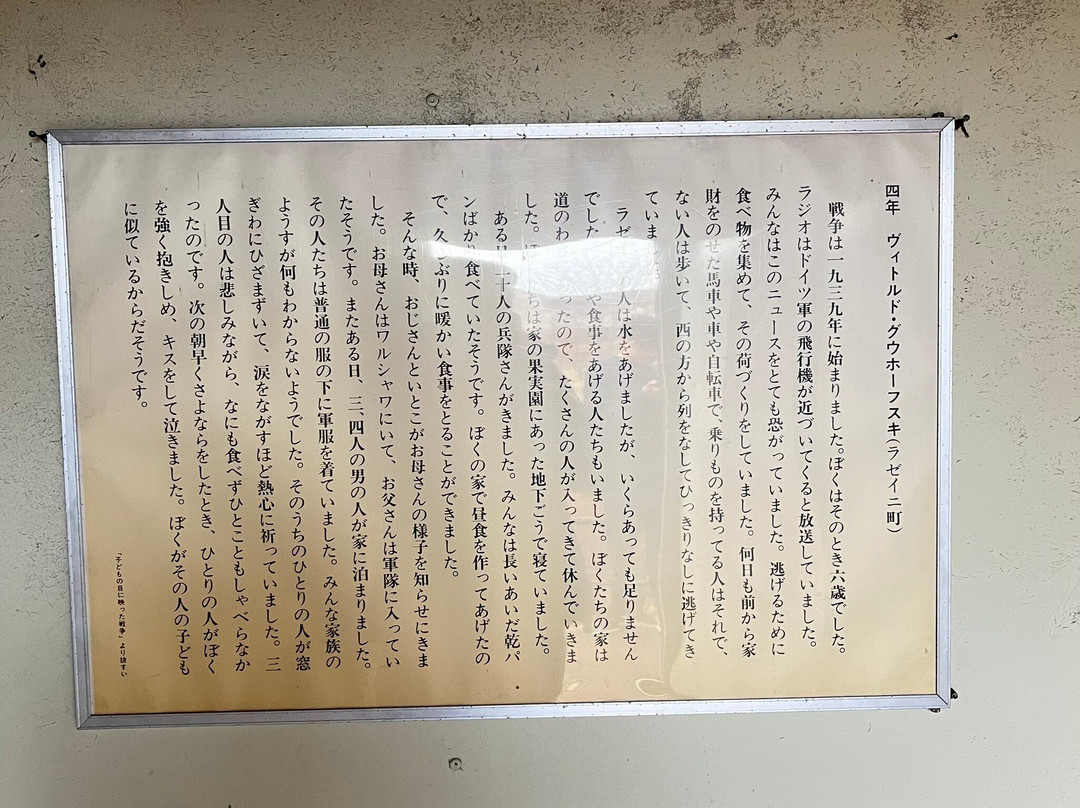 四年　ヴィトルド・グウホーフスキ（ラゼイニ町）
　戦争は一九三九年に始まりました。ぼくはそのとき六歳でした。
ラジオはドイツ軍の飛行機が近づいてくると放送していました。
みんなはこのニュースをとても恐がっていました。逃げるために
食べ物を集めて、その荷づくりをしていました。何日も前から家
財をのせた馬車や車や自転車で、乗りものを持ってる人はそれで、
ない人は歩いて、西の方から列をなしてひっきりなしに逃げてき
ていま
　ラゼ　人は水をあげましたが、いくらあっても足りません
でした　や食事をあげる人たちもいました。ぼくたちの家は
道のわ　ったので、たくさんの人が入ってきて休んでいきま
した。　ちは家の果実園にあった地下ごうで寝ていました。
　ある日二十人の兵隊さんがきました。みんなは長いあいだ乾パ
ンばかり食べていたそうです。ぼくの家で昼食を作ってあげたの
で、久しぶりに暖かい食事をとることができました。
　そんな時、おじさんといとこがお母さんの様子を知らせにきま
した。お母さんはワルシャワにいて、お父さんは軍隊に入ってい
たそうです。またある日、三、四人の男の人が家に泊まりました。
その人たちは普通の服の下に軍服を着ていました。みんな家族の
ようすが何もわからないようでした。そのうちのひとりの人が窓
ぎわにひざまずいて、涙をながすほど熱心に祈っていました。三
人目の人は悲しみながら、なにも食べずひとこともしゃべらなか
ったのです。次の朝早くさよならをしたとき、ひとりの人がぼく
を強く抱きしめ、キスをして泣きました。ぼくがその人の子ども
に似ているからだそうです。
「子どもの目に映った戦争」より抜すい